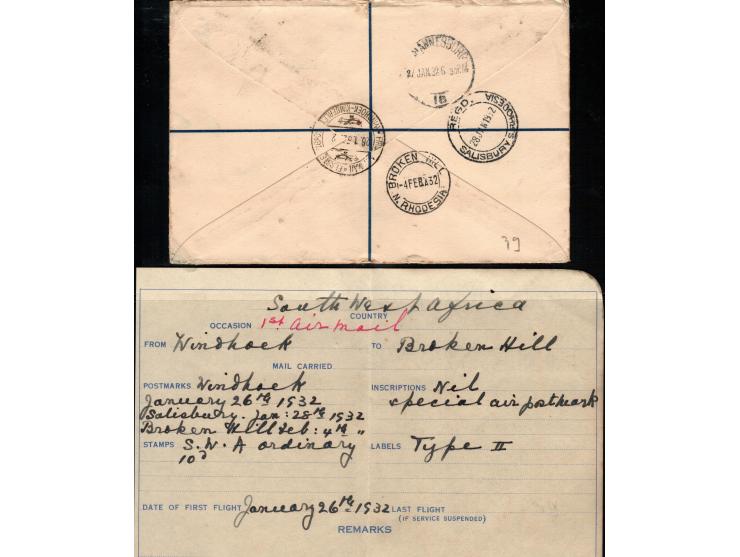 HANNESBURG
27 JAN 32 6
16
REGD.
SALISBURY S. RHODESIA
28 JAN 1932
26.1.32
BROKEN HILL
-4 FEB 32
N. RHODESIA
39
South West Africa
COUNTRY
OCCASION 1st Air Mail
FROM Windhoek TO Broken Hill
MAIL CARRIED
POSTMARKS Windhoek INSCRIPTIONS Nil
January 26th 1932 special air postmark
Salisbury. Jan: 28th 1932
Broken Hill Feb: 4th "
STAMPS S.W.A ordinary LABELS Type II
10d
DATE OF FIRST FLIGHT January 26th 1932 LAST FLIGHT
(IF SERVICE SUSPENDED)
REMARKS